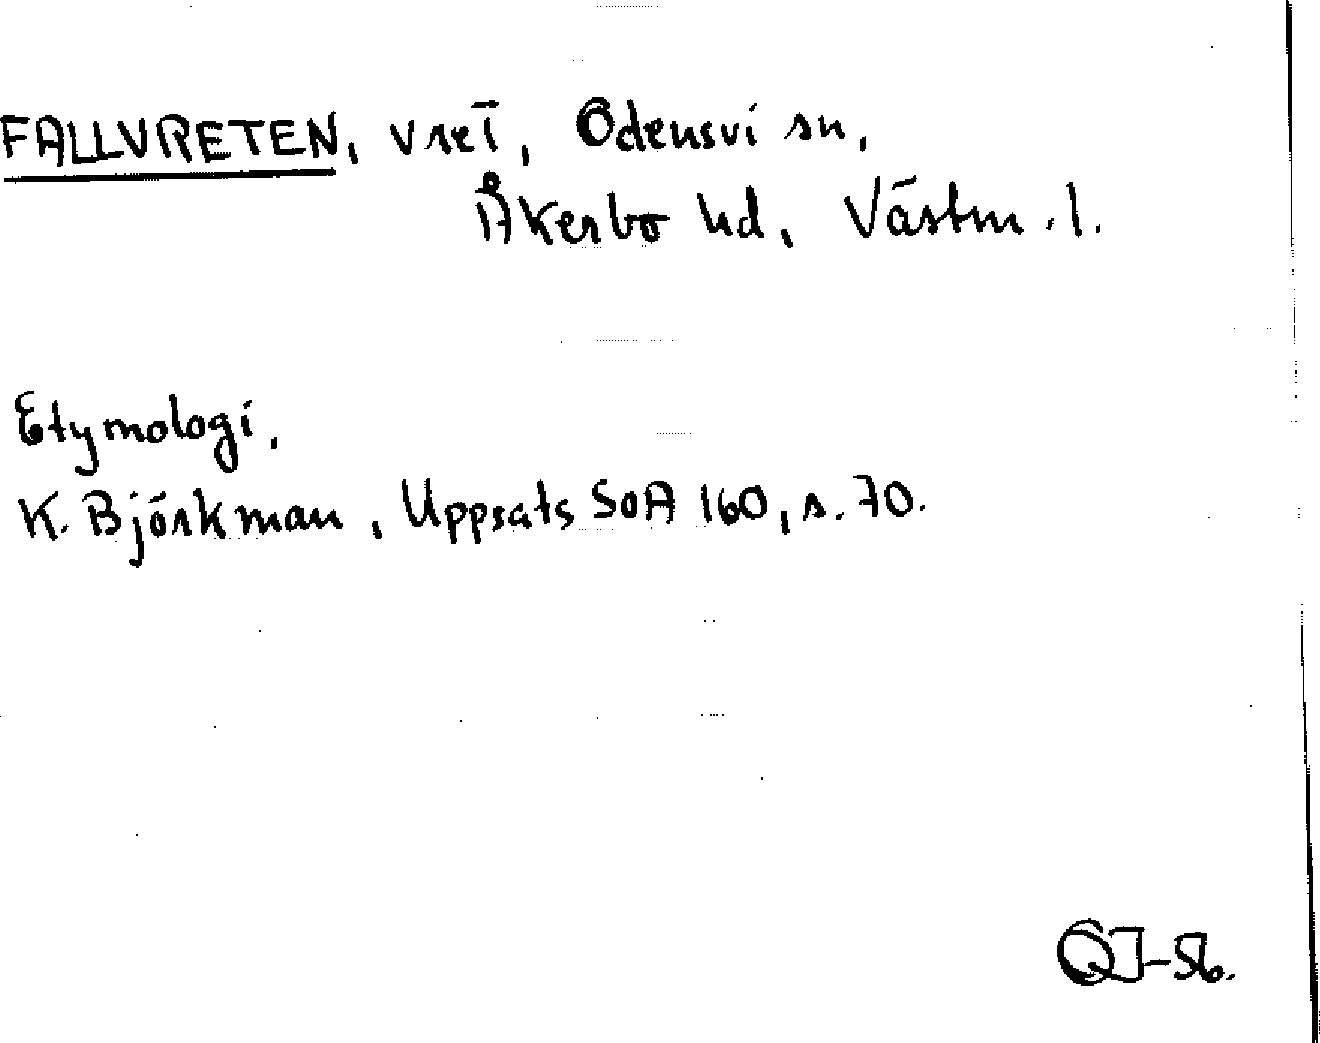 FALLVRETEN, vret, Odensvi sn,
Åkerbo hd, Västm. l.
Etymologi,
K. Björkman, Uppsats SOA 160, s. 70.